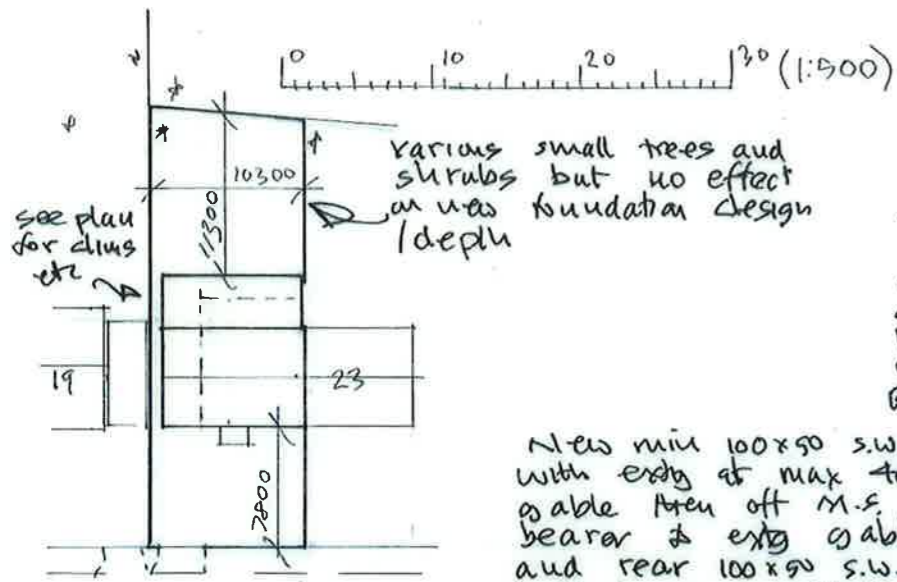 0 10 20 30 (1:500)
various small trees and
shrubs but no effect
on new foundation design
/depth
10300
11300
see plan
for dims
etc
19
23
7800
New min 100x50 s.w.
with extg at max
gable then off M.S.
bearer & extg gab
and rear 100x50 s.w.